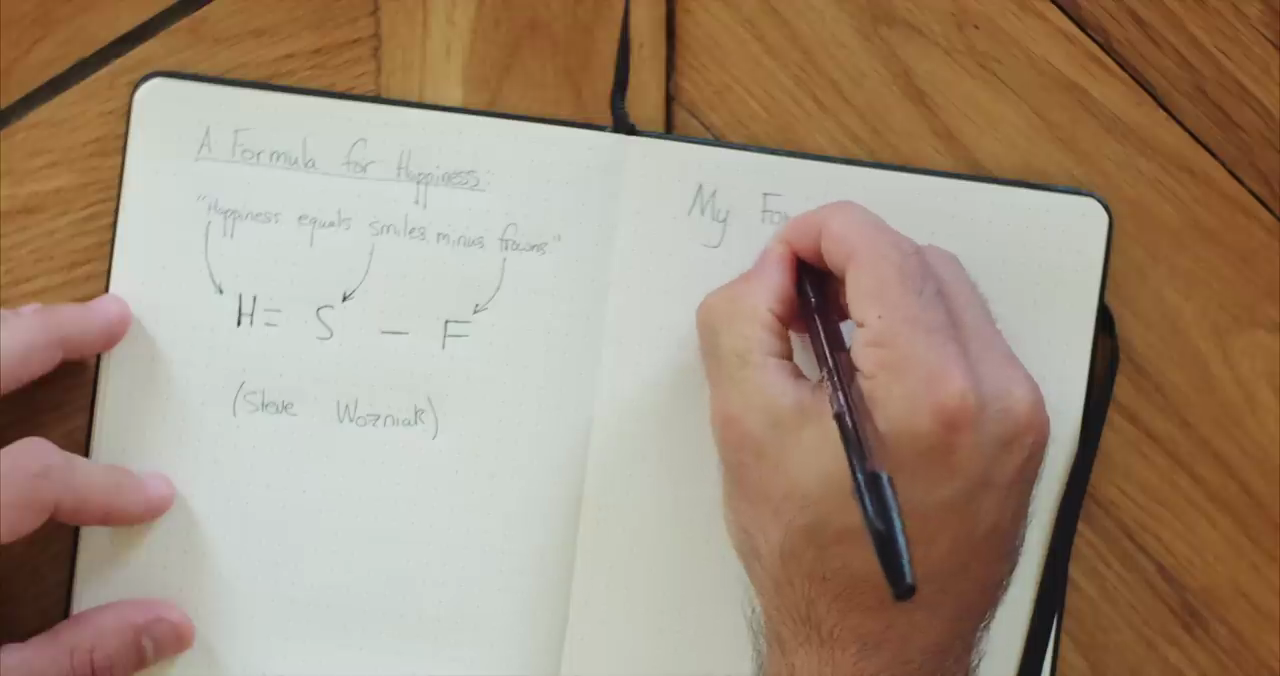 A Formula for Happiness
"Happiness equals smiles minus frowns"
H = S – F
(Steve Wozniak)
My Fo